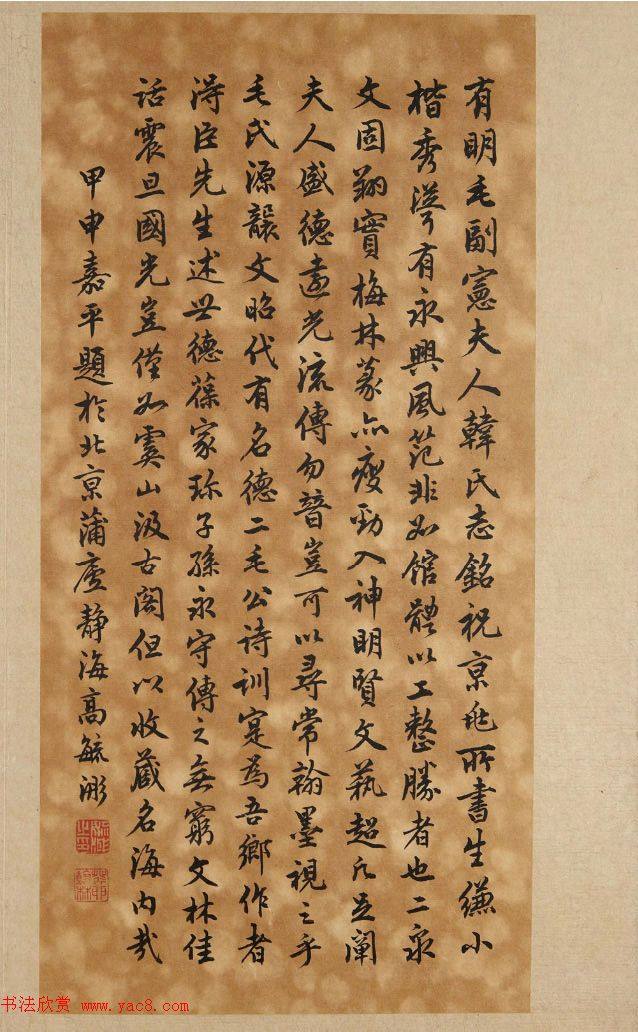 有明毛副憲夫人韓氏志銘祝京兆所書生縑小
楷秀潤有永興風范非如館體以工整勝者也二泉
文固翔實梅林篆亦瘦勁入神明賢文藝超凡足闡
夫人盛德遺光流傳勿替豈可以尋常翰墨視之乎
毛氏源龢文昭代有名德二毛公詩訓寔為吾鄉作者
淂臣先生述世德葆家珎子孫永守傳之無窮文林佳
話震旦國光豈僅如虞山汲古閣但以收藏名海內哉
甲申嘉平題於北京蒲廬靜海高毓浵
书法欣赏 www.yac8.com